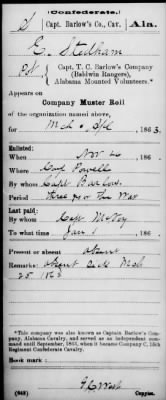 (Confederate.)
S Capt. Barlow's Co., Cav. Ala.
E. Stedham
Pvt, Capt. T. C. Barlow's Company
(Baldwin Rangers),
Alabama Mounted Volunteers.*
Appears on
Company Muster Roll
of the organization named above,
for Mch & Apl, 1863.
Enlisted:
When Nov 20, 186
Where Camp Powell
By whom Capt Barlow
Period Three yrs or the War
Last paid:
By whom Capt McVoy
To what time Jan 1, 186
Present or absent Absent
Remarks: Absent Sick Mch
25 1863
*This company was also known as Captain Barlow's Company, Alabama Cavalry, and served as an independent command until September, 1863, when it became Company C, 15th Regiment Confederate Cavalry.
Book mark:
(642) Copyist.